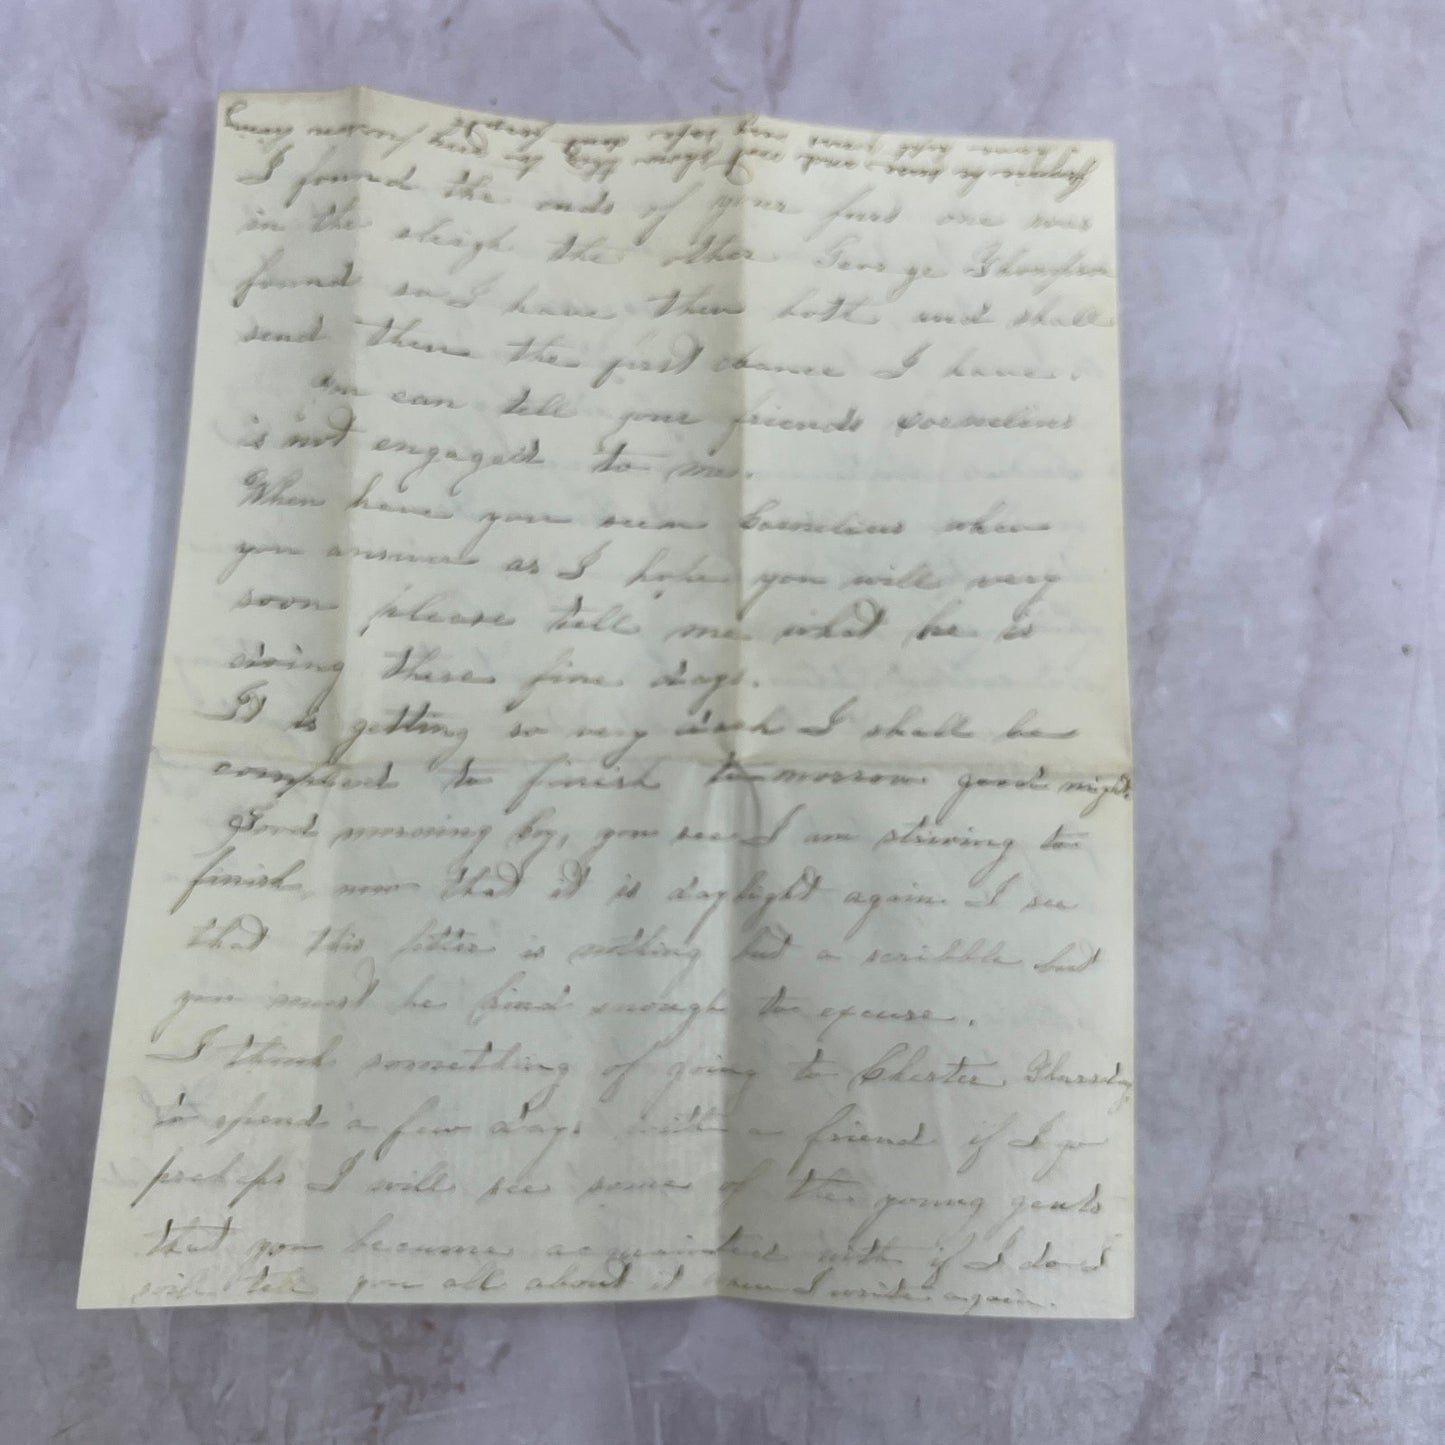 I found the ends of your furs one was
in the sleigh the other George Thompson
found so I have them both and shall
send them the first chance I have.
You can tell your friends Cornelius
is not engaged to me.
When have you seen Cornelius when
you answer as I hope you will very
soon please tell me what he is
doing these fine days.
It is getting so very dark I shall be
compeled to finish to morrow good night.
Good morning Boy, you see I am striving to
finish now that it is daylight again I see
that this letter is nothing but a scribble but
you must be kind enough to excuse.
I think something of going to Chester Thursday
to spend a few days with a friend if I go
perhaps I will see some of the young gents
that you became acquainted with if I do I
will tell you all about it when I write again.